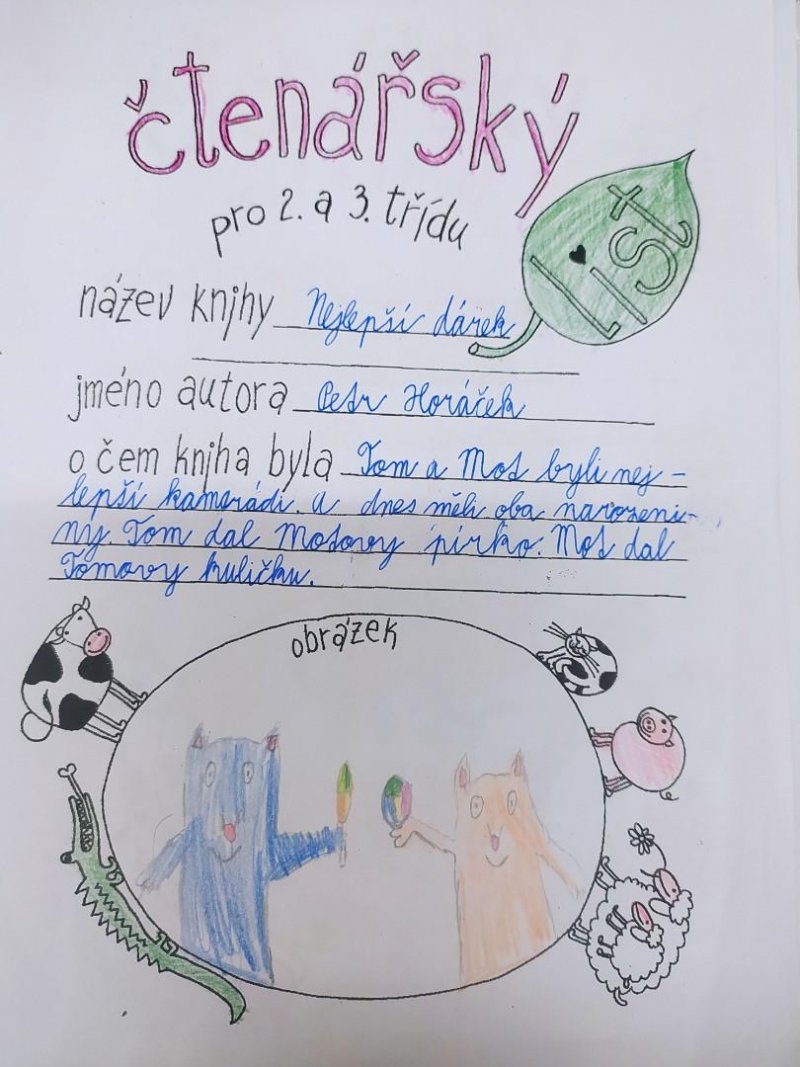 čtenářský
list
pro 2. a 3. třídu
název knihy Nejlepší dárek
jméno autora Petr Horáček
o čem kniha byla Tom a Mot byli nej-
lepší kamerádi. a dnes měli oba narozeni-
ny. Tom dal Motovy pírko. Mot dal
Tomovy kuličku.
obrázek